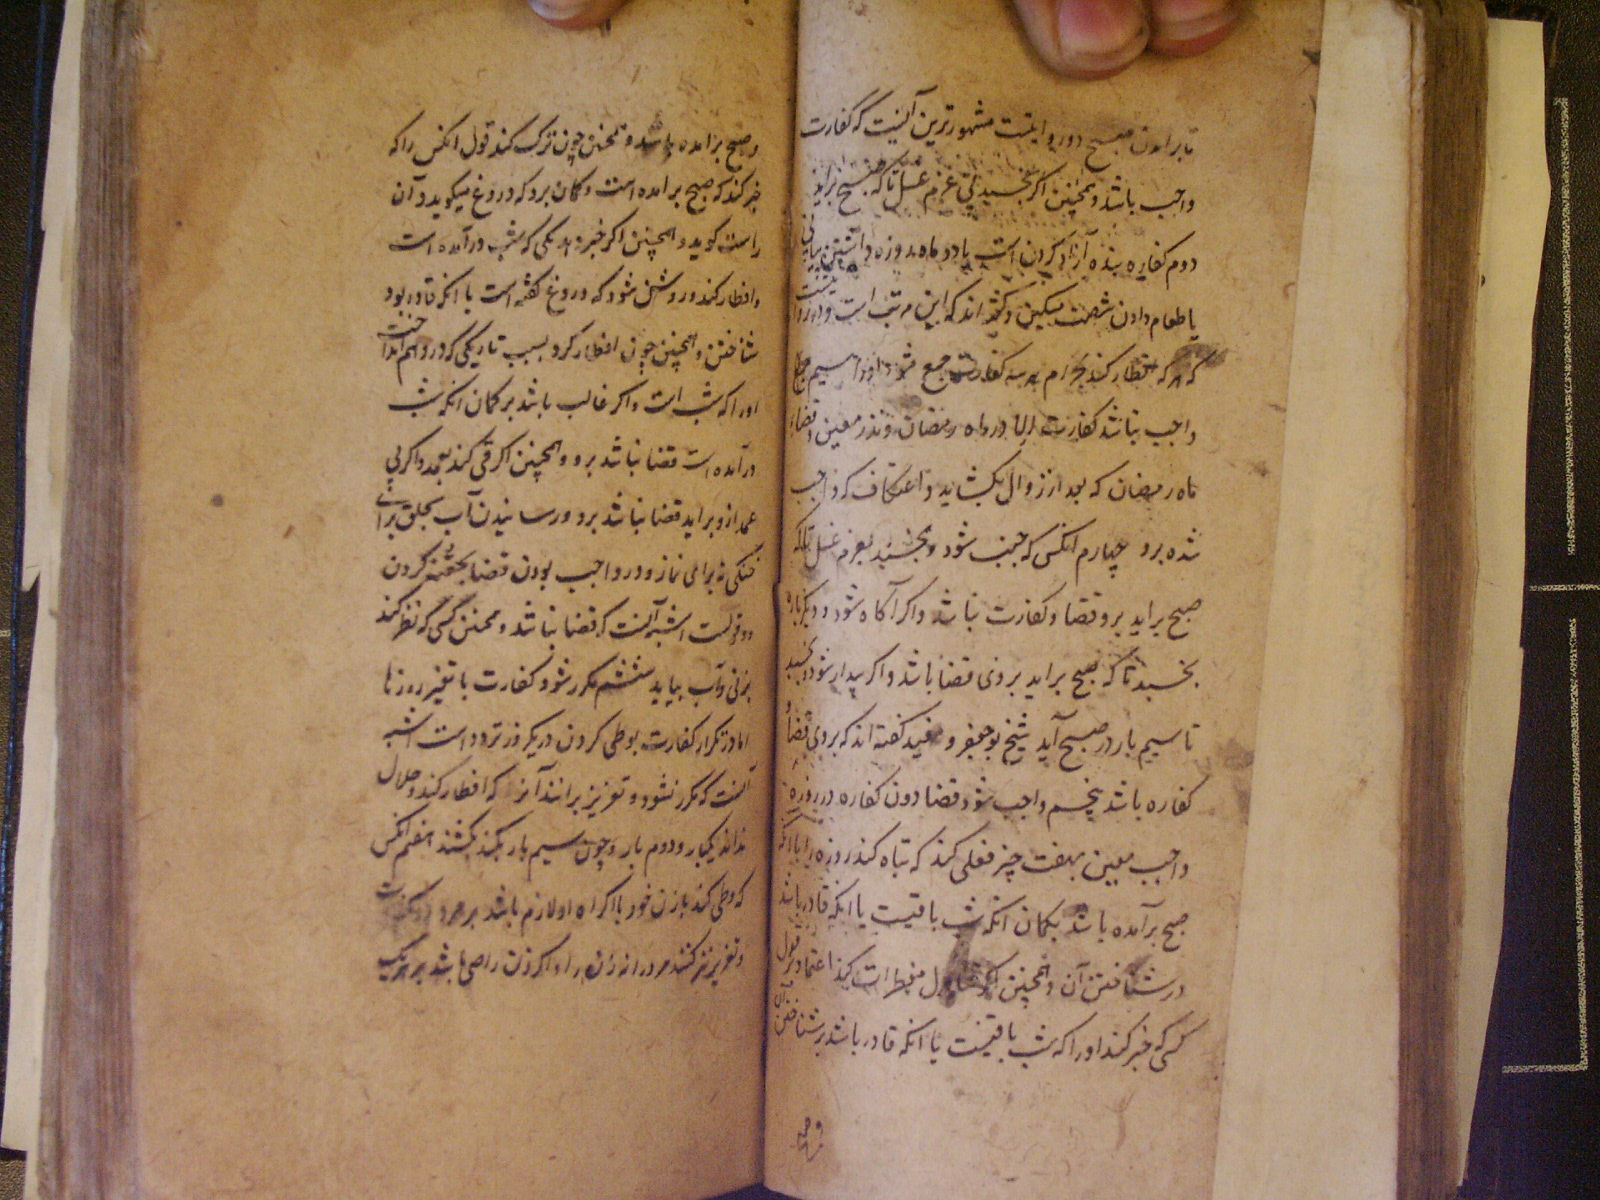 تا برامدن صبح دو روایتست مشهورترین آنست که کفارت
واجب باشد و همچنین اگر بخسبد بی عزم غسل تا که صبح براید
دوم کفاره بنده آزاد کردن است یا دو ماه روزه داشتن پیاپی
یا طعام دادن شصت مسکین و گفته اند که این مرتب است و در روایتست
که هر که افطار کند بحرام هر سه کفارت جمع شود او را سیم
واجب نباشد کفارت الا در ماه رمضان و نذر معین و قضاء
ماه رمضان که بعد از زوال بگشاید و اعتکاف که واجب
شده برو چهارم انکس که جنب شود و بخسبد بعزم غسل تا که
صبح براید برو قضا و کفارت نباشد و اگر آگاه شود و دیگرباره
بخسبد تا که صبح براید بروی قضا باشد و اگر بیدار شود و بخسبد
تا سیم بار در صبح آید شیخ بوجعفر و مفید گفته اند که بروی قضا و
کفاره باشد پنجم واجب شود قضا دون کفاره در روزه
واجب معین بهفت چیز فعلی کند که تباه کند روزه را با انکه
صبح برآمده باشد بکمان انکه شب باقیست با انکه قادر باشد
در شناختن آن و همچنین اگر تناول مفطرات کند اعتماد بر قول
کسی که خبر کند او را که شب باقیست با انکه قادر باشد بر شناختن آن
و صبح برامده باشد و همچنین چون ترک کند قول انکس را که
خبر کند که صبح برامده است و کمان برد که دروغ میکوید و آن
راست کوید و همچنین اگر خبر دهد یکی که شب درآمده است
و افطار کند و روشن شود که دروغ کفته است با انکه قادر بود
شناختن و همچنین چون افطار کرد بسبب تاریکی که در وهم انداخت
او را که شب است و اگر غالب باشد بر کمان انکه شب
درآمده است قضا نباشد برو و همچنین اگر قی کند بعمد و اگر بی
عمد ازو براید قضا نباشد برو و رسانیدن آب بحلق برای
خنکی نه برای نماز و در واجب بودن قضا بحقنه کردن
دو قولست اشبه آنست که قضا نباشد و همچنین کسی که نظر کند
بزنی و آب بیاید ششم مکرر شود کفارت با تغیر روزها
اما در تکرار کفارت بوطی کردن در یکروز تردد است اشبه
آنست که مکرر نشود و تعزیر برانند آنرا که افطار کند و حلال
نداند یکبار و دوم بار و چون سیم بار بکند بکشند هفتم انکس
که وطی کند با زن خود با اکراه او لازم باشد بر مرد دو کفارت
و تعزیر نیز کنند مرد را نه زن را و اگر زن راضی باشد بر هر یک